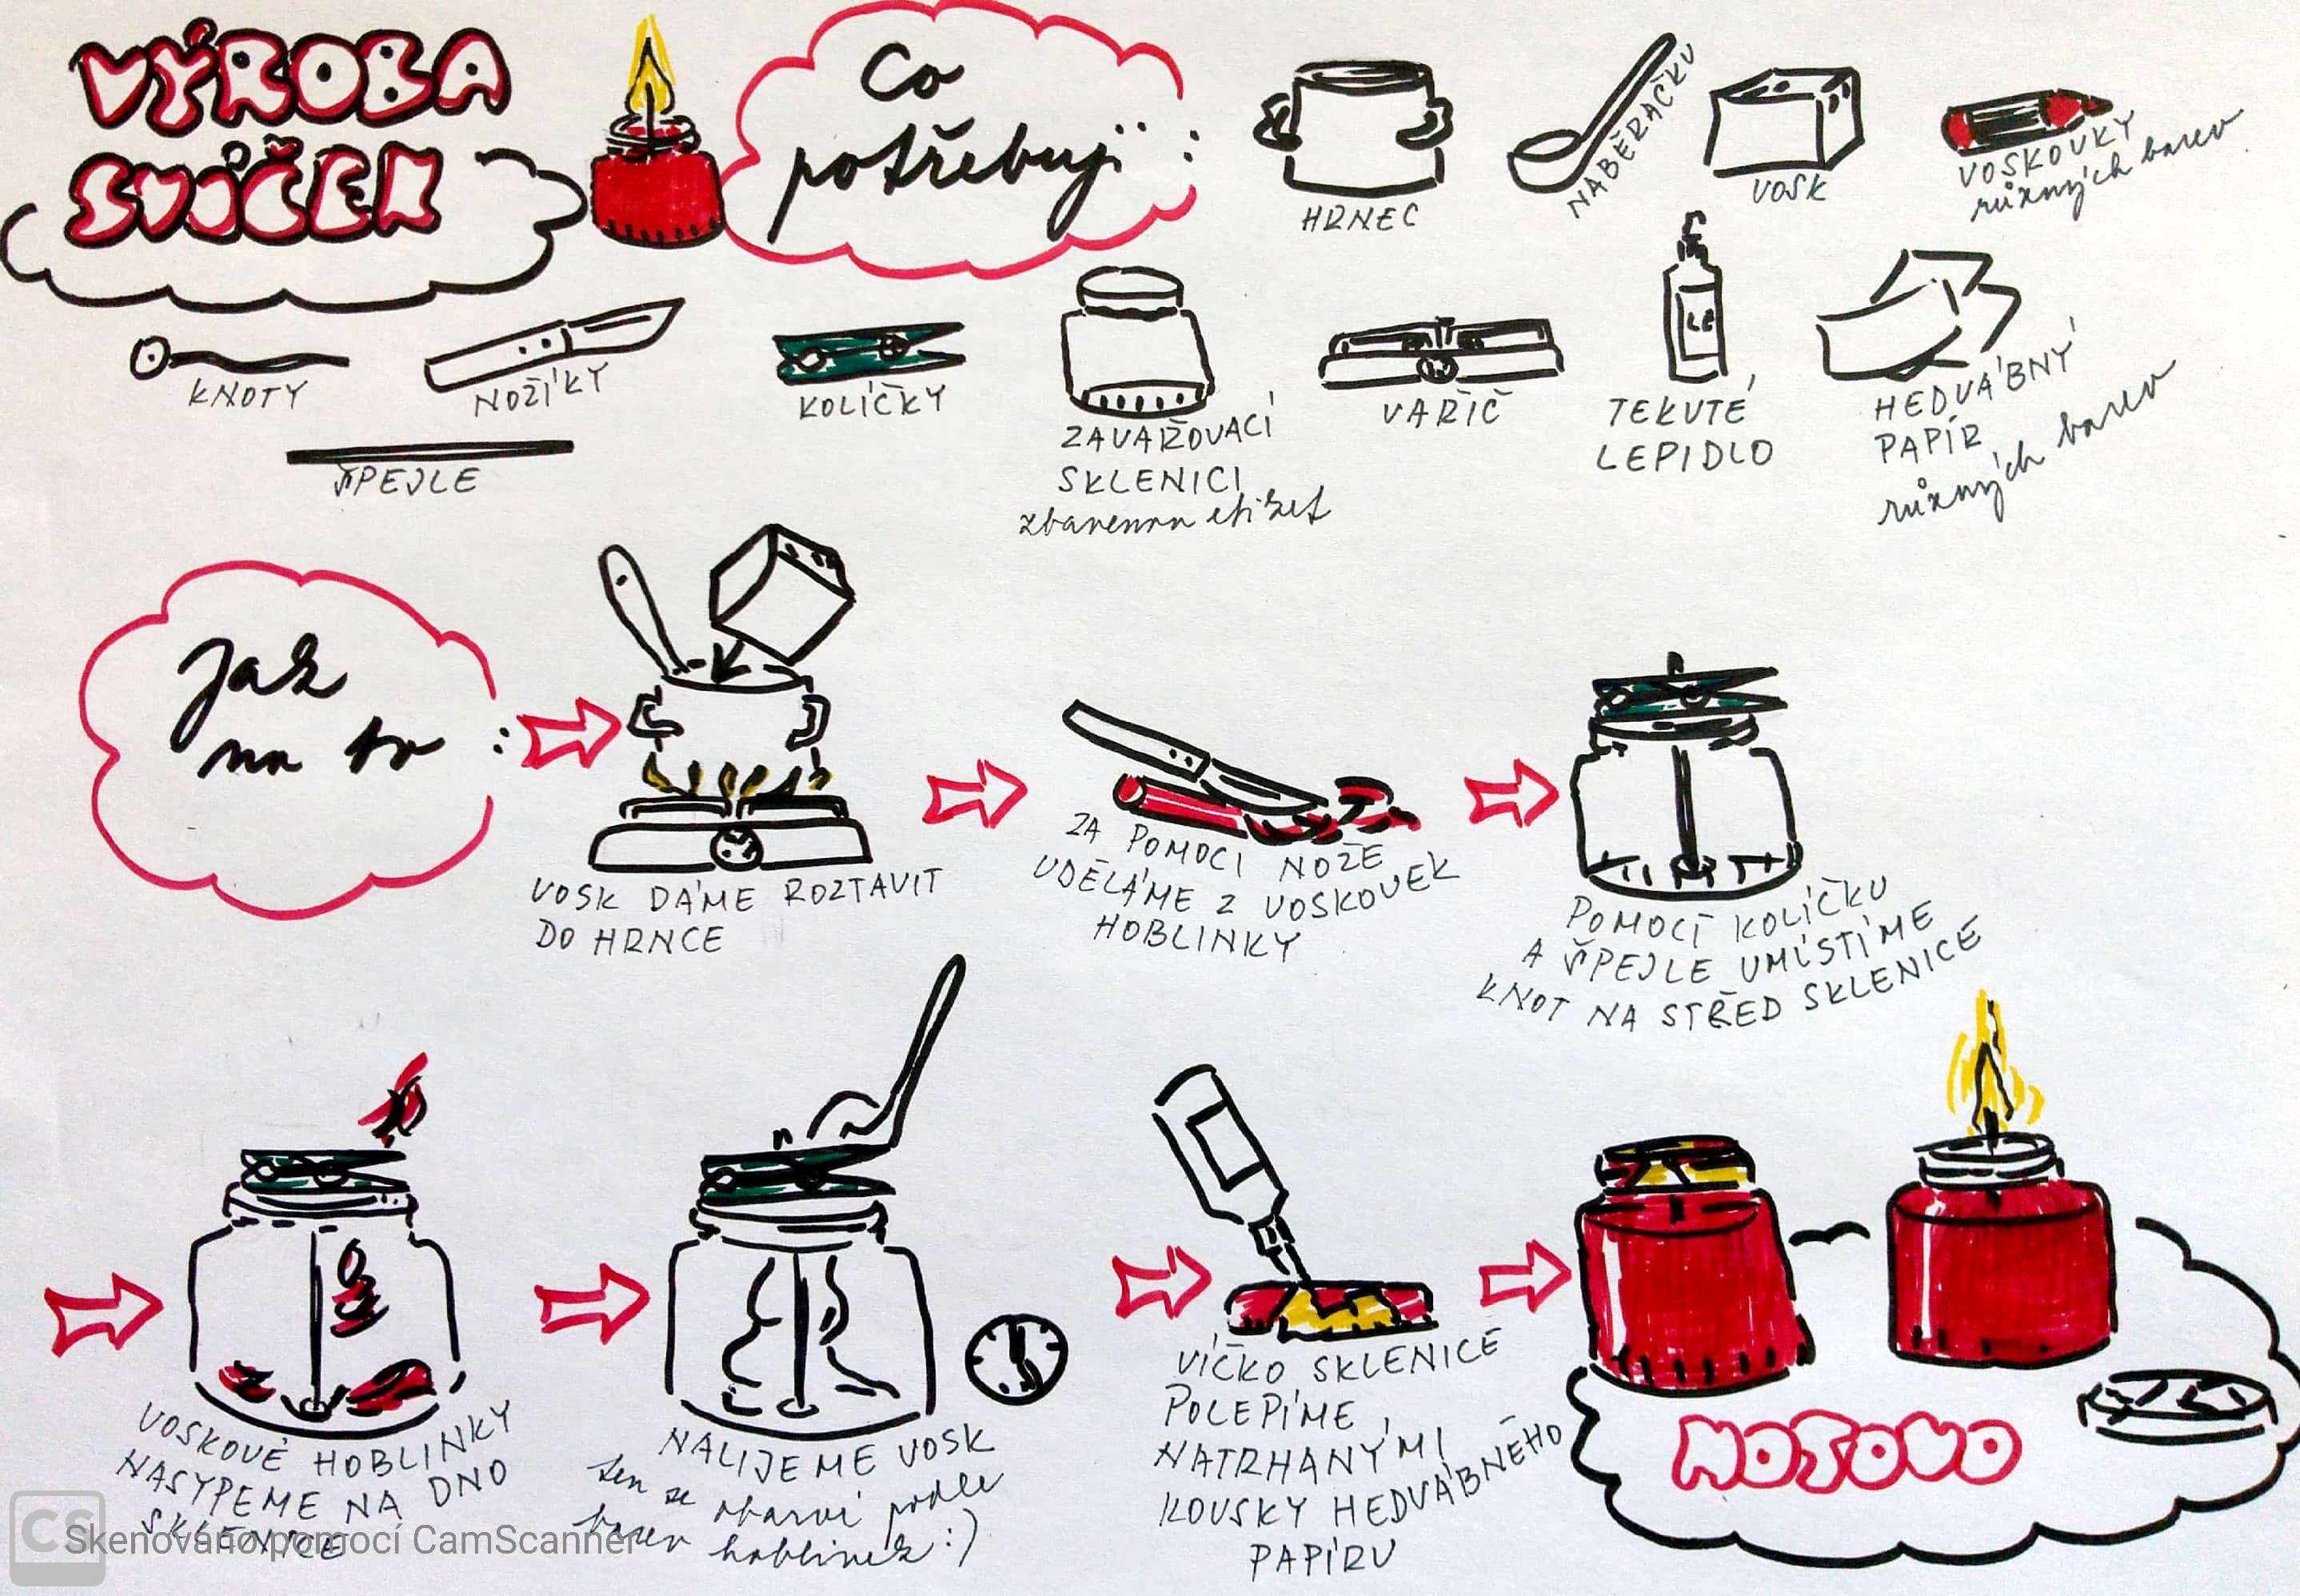 VÝROBA
SVÍČEK
Co
potřebuji:
HRNEC
NABĚRAČKU
VOSK
VOSKOVKY
různých barev
KNOTY
NOŽÍKY
KOLÍČKY
ZAVAŘOVACÍ
SKLENICI
zbavenou etiket
VAŘIČ
TEKUTÉ
LEPIDLO
LE
HEDVÁBNÝ
PAPÍR
různých barev
ŠPEJLE
Jak
na to:
VOSK DÁME ROZTAVIT
DO HRNCE
ZA POMOCI NOŽE
UDĚLÁME Z VOSKOVEK
HOBLINKY
POMOCÍ KOLÍČKU
A ŠPEJLE UMÍSTÍME
KNOT NA STŘED SKLENICE
VOSKOVÉ HOBLINKY
NASYPEME NA DNO
SKLENICE
NALIJEME VOSK
ten se obarví podle
barev hoblinek :)
VÍČKO SKLENICE
POLEPÍME
NATRHANÝMI
KOUSKY HEDVÁBNÉHO
PAPÍRU
HOTOVO
CS
Skenováno pomocí CamScanner